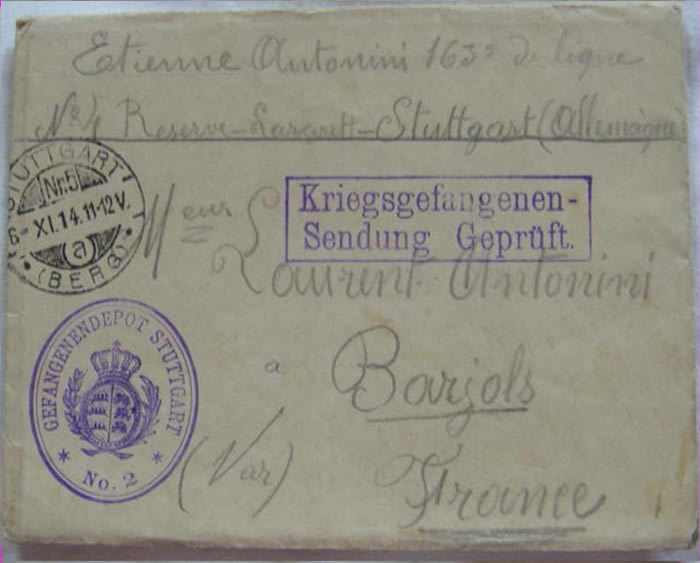 Etienne Antonini 163e de ligne
No 4 Reserve-Lazarett-Stuttgart (Allemagne
STUTTGART
Nr.5
6-XI.14.11-12V.
(a)
(BERG)
Kriegsgefangenen-
Sendung Geprüft.
Meurs
Laurent Antonini
à
Barjols
(Var)
France
GEFANGENENDEPOT STUTTGART
* No. 2 *